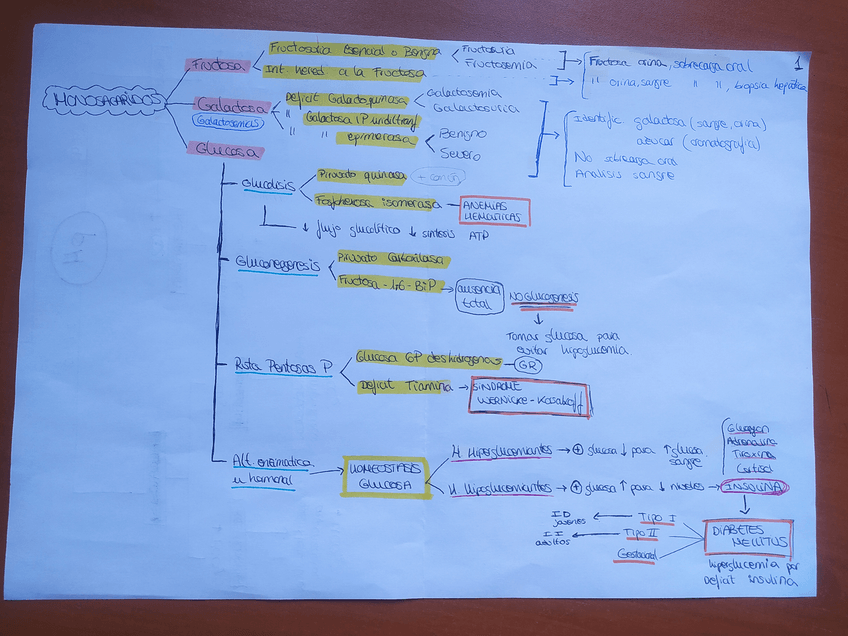 1
MONOSACARIDOS
Fructosa
Fructosuria Esencial o Benigna
Fructosuria
Fructosemia
Int. hered. a la Fructosa
Fructosa orina, sobrecarga oral
" orina, sangre " ", biopsia hepática
Galactosa
Galactosemias
Deficit Galactoquinasa
Galactosemia
Galactosuria
" Galactosa 1P uridiltransf
" " epimerasa
Benigno
Severo
Identific galactosa (sangre, orina)
azucar (cromatografia)
No sobrecarga oral
Analisis sangre
Glucosa
Glucolisis
Piruvato quinasa
Fosfohexosa isomerasa
ANEMIAS
HEMOLITICAS
↓ flujo glucolítico ↓ sintesis ATP
Gluconeogenesis
Piruvato Carboxilasa
Fructosa-1,6-BiP
ausencia
total
NO Glucogenesis
Tomar glucosa para
evitar hipoglucemia.
Ruta Pentosas P
Glucosa 6P deshidrogenas
GR
Deficit Tiamina
SINDROME
WERNICKE-Kosakoff
Alt. enzimatica
u hormonal
HOMEOSTASIS
GLUCOSA
H Hiperglucemiantes → ⊕ glucosa ↓ para ↑ glucosa
sangre
Glucagon
Adrenalina
Tiroxina
Cortisol
H Hipoglucemiantes → ⊕ glucosa ↑ para ↓ niveles → INSULINA
DIABETES
MELLITUS
hiperglucemia por
Deficit insulina
Tipo I
ID
jovenes
Tipo II
II
adultos
Gestacional